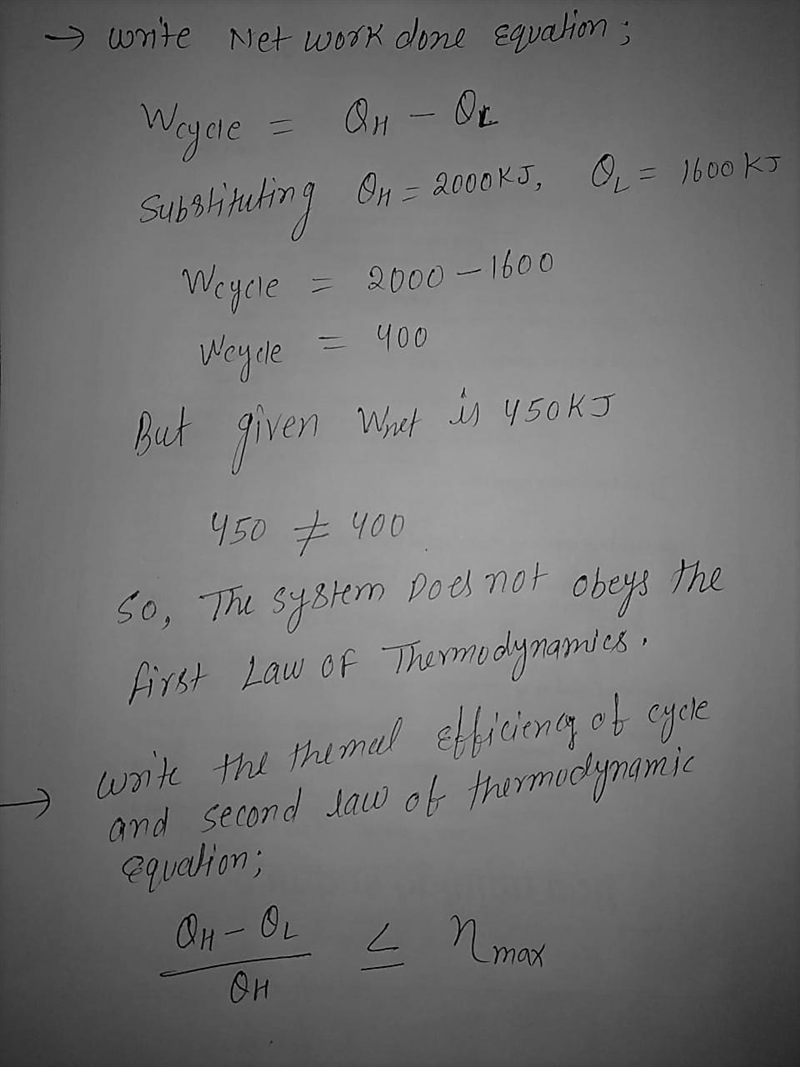 → Write Net work done Equation;
Wcycle = QH − QL
Substituting QH = 2000KJ, QL = 1600 KJ
Wcycle = 2000 − 1600
Wcycle = 400
But given Wnet is 450KJ
450 ≠ 400
So, The system Does not obeys the
first Law of Thermodynamics.
→ Write the themal Efficiency of cycle
and second law of thermodynamic
Equation;
QH − QL
/ QH ≤ ηmax